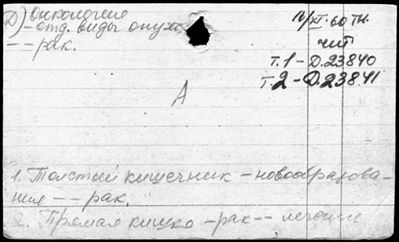 Д) Онкология
- отд. виды опух.
- - рак.
16/XI-60 тн.
чит
Т.1 - Д.23840
Т.2 - Д.23841
А
1. Толстый кишечник - новообразова-
ния - - рак.
2. Прямая кишка - рак - - лечение